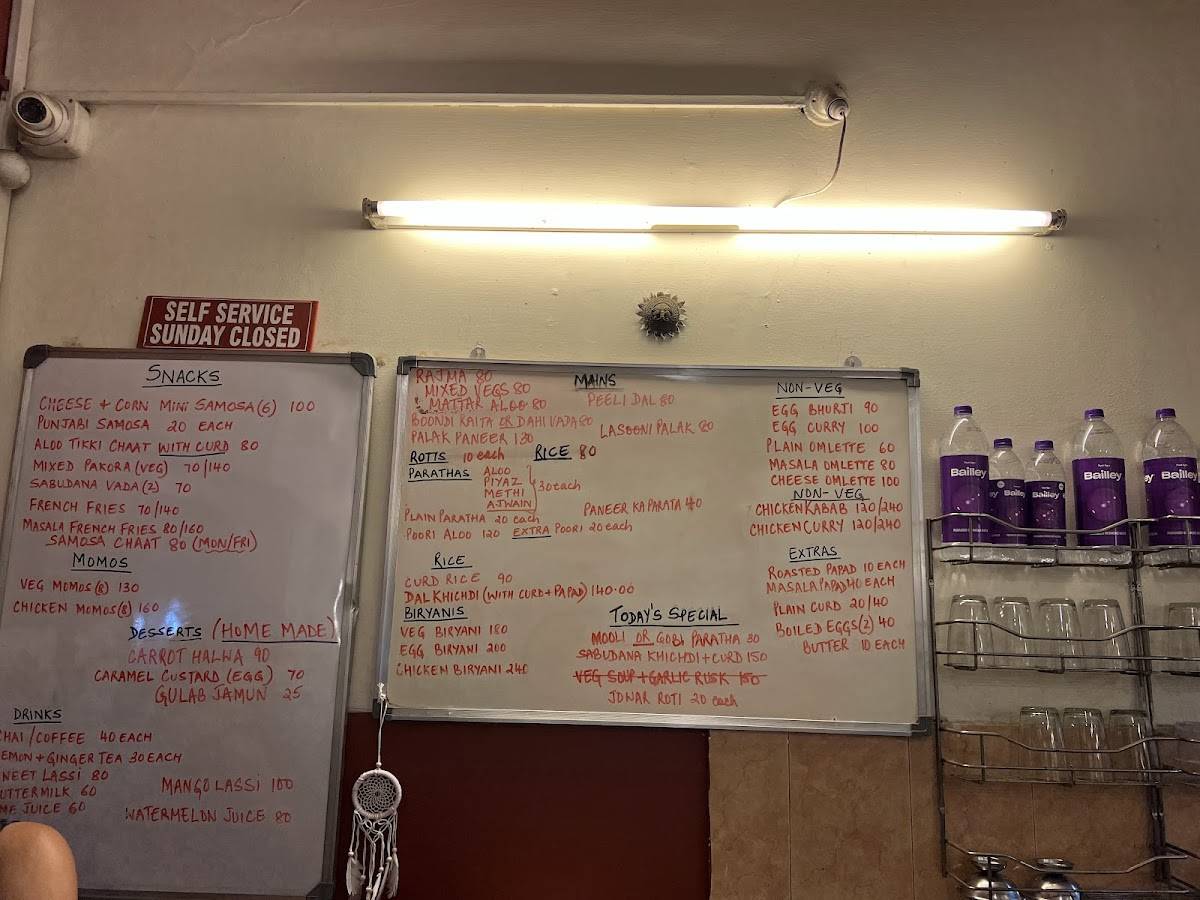 SELF SERVICE
SUNDAY CLOSED
SNACKS
CHEESE + CORN MINI SAMOSA (6) 100
PUNJABI SAMOSA 20 EACH
ALOO TIKKI CHAAT WITH CURD 80
MIXED PAKORA (VEG) 70/140
SABUDANA VADA (2) 70
FRENCH FRIES 70/140
MASALA FRENCH FRIES 80/160
SAMOSA CHAAT 80 (MON/FRI)
MOMOS
VEG MOMOS (8) 130
CHICKEN MOMOS (8) 160
DESSERTS (HOME MADE)
CARROT HALWA 90
CARAMEL CUSTARD (EGG) 70
GULAB JAMUN 25
DRINKS
CHAI/COFFEE 40 EACH
EMON + GINGER TEA 30 EACH
WEET LASSI 80
UTTERMILK 60
ME JUICE 60
MANGO LASSI 100
WATERMELON JUICE 80
MAINS
RAJMA 80
MIXED VEGS 80
MATTAR ALOO 80
PEELI DAL 80
BOONDI RAITA OR DAHI VADA 80
PALAK PANEER 130
LASOONI PALAK 80
ROTIS 10 each RICE 80
PARATHAS
ALOO
PIYAZ
METHI
AJWAIN
30 each
PLAIN PARATHA 20 each
PANEER KA PARATA 40
POORI ALOO 120 EXTRA POORI 20 each
RICE
CURD RICE 90
DAL KHICHDI (WITH CURD + PAPAD) 140.00
BIRYANIS
VEG BIRYANI 180
EGG BIRYANI 200
CHICKEN BIRYANI 240
TODAY'S SPECIAL
MOOLI OR GOBI PARATHA 30
SABUDANA KHICHDI + CURD 150
VEG SOUP + GARLIC RUSK 150
JOWAR ROTI 20 each
NON-VEG
EGG BHURJI 90
EGG CURRY 100
PLAIN OMLETTE 60
MASALA OMLETTE 80
CHEESE OMLETTE 100
NON-VEG
CHICKEN KABAB 120/240
CHICKEN CURRY 120/240
EXTRAS
ROASTED PAPAD 10 EACH
MASALA PAPAD 40 EACH
PLAIN CURD 20/40
BOILED EGGS (2) 40
BUTTER 10 EACH
Bailley
Bailley
Bailley
Bailley
Bailley